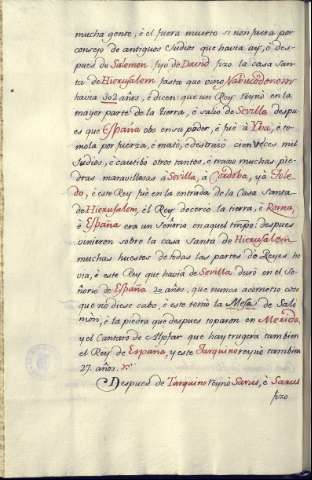 mucha gente, è el fuera muerto si non fuera por
consejo de antiguos Judios que havia ay, ò des-
pues de Salomon fijo de David fizo la casa San-
ta de Hierusalem fasta que vino Nabucodonosor
havia 302 años, è dicen que un Rey reynò en la
mayor parte de la tierra, è salio de Sevilla despu
es que España obo en su poder, è fuè à Yba, è to-
mola por fuerza, è matò, è destruiò cien veces mil
Judios, è cautibò otros tantos, è traxo muchas pie-
dras maravillosas à Sevilla, à Córdoba, yà Tole-
do, è este Rey fuè en la entrada de la Casa Santa
de Hierusalem, èl Rey de cerco la tierra, è Roma,
è España era un Señorio en aquel tiempo, despues
vinieron sobre la casa Santa de Hierusalem
muchas huestes de todas las partes de Reyes, to
via, è este Rey que havia de Sevilla durò en el Se-
ñorio de España 20 años, que nunca acometio cosa
que no diese cabo, è este tomò la Mesa de Salo-
mòn, è la piedra que despues toparon en Merida,
y el Cantaro de Aljofar que hay trugera tambien
el Rey de España, y este Tarquino reynò tambien
27. años.
Despues de Tarquino reynò Sarus, è Sarus
fizo